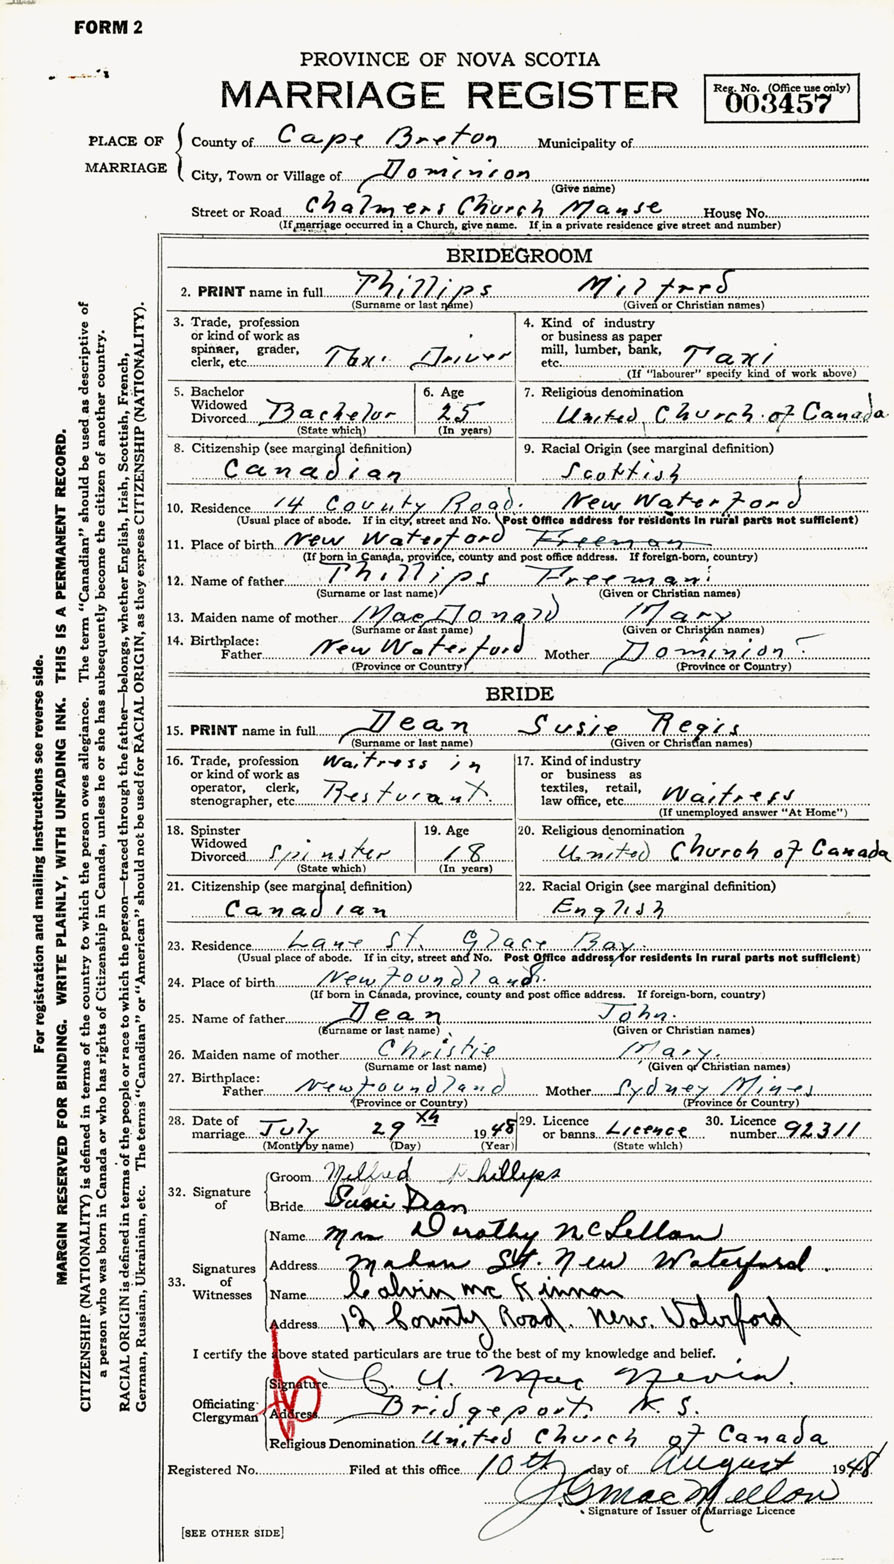 FORM 2
PROVINCE OF NOVA SCOTIA
MARRIAGE REGISTER
Reg. No. (Office use only)
003457
PLACE OF MARRIAGE
County of Cape Breton Municipality of
City, Town or Village of Dominion
(Give name)
Street or Road Chalmers Church Manse House No.
(If marriage occurred in a Church, give name. If in a private residence give street and number)
BRIDEGROOM
2. PRINT name in full Phillips Milfred
(Surname or last name) (Given or Christian names)
3. Trade, profession or kind of work as spinner, grader, clerk, etc. Taxi Driver
4. Kind of industry or business as paper mill, lumber, bank, etc. Taxi
(If "labourer" specify kind of work above)
5. Bachelor Widowed Divorced Bachelor
(State which)
6. Age 25
(In years)
7. Religious denomination
United Church of Canada
8. Citizenship (see marginal definition)
Canadian
9. Racial Origin (see marginal definition)
Scottish
10. Residence 14 County Road. New Waterford
(Usual place of abode. If in city, street and No. Post Office address for residents in rural parts not sufficient)
11. Place of birth New Waterford Freeman
(If born in Canada, province, county and post office address. If foreign-born, country)
12. Name of father Phillips Freeman
(Surname or last name) (Given or Christian names)
13. Maiden name of mother MacDonard Mary
(Surname or last name) (Given or Christian names)
14. Birthplace: Father New Waterford Mother Dominion
(Province or Country) (Province or Country)
BRIDE
15. PRINT name in full Dean Susie Regis
(Surname or last name) (Given or Christian names)
16. Trade, profession or kind of work as operator, clerk, stenographer, etc. Waitress in Resturant.
17. Kind of industry or business as textiles, retail, law office, etc. Waitress
(If unemployed answer "At Home")
18. Spinster Widowed Divorced Spinster
(State which)
19. Age 18
(In years)
20. Religious denomination
United Church of Canada
21. Citizenship (see marginal definition)
Canadian
22. Racial Origin (see marginal definition)
English
23. Residence Lane St. Glace Bay.
(Usual place of abode. If in city, street and No. Post Office address for residents in rural parts not sufficient)
24. Place of birth Newfoundland.
(If born in Canada, province, county and post office address. If foreign-born, country)
25. Name of father Dean John.
(Surname or last name) (Given or Christian names)
26. Maiden name of mother Christie Mary.
(Surname or last name) (Given or Christian names)
27. Birthplace: Father Newfoundland Mother Sydney Mines
(Province or Country) (Province or Country)
28. Date of marriage July 29 th 1948
(Month by name) (Day) (Year)
29. Licence or banns Licence
(State which)
30. Licence number 92311
32. Signature of
Groom Milfred Phillips
Bride Susie Dean
33. Signatures of Witnesses
Name Mrs Dorothy McLellan
Address Mahon St. New Waterford.
Name Calvin McKinnon
Address 12 County Road. New. Waterford
I certify the above stated particulars are true to the best of my knowledge and belief.
Officiating Clergyman
Signature C. U. MacNevin.
Address Bridgeport. N.S.
Religious Denomination United Church of Canada
Registered No. Filed at this office 10th day of August 1948
J G MacMellon
Signature of Issuer of Marriage Licence
[SEE OTHER SIDE]
For registration and mailing instructions see reverse side.
MARGIN RESERVED FOR BINDING. WRITE PLAINLY, WITH UNFADING INK. THIS IS A PERMANENT RECORD.
CITIZENSHIP (NATIONALITY) is defined in terms of the country to which the person owes allegiance. The term "Canadian" should be used as descriptive of
a person who was born in Canada or who has rights of Citizenship in Canada, unless he or she has subsequently become the citizen of another country.
RACIAL ORIGIN is defined in terms of the people or race to which the person—traced through the father—belongs, whether English, Irish, Scottish, French,
German, Russian, Ukrainian, etc. The terms "Canadian" or "American" should not be used for RACIAL ORIGIN, as they express CITIZENSHIP (NATIONALITY).